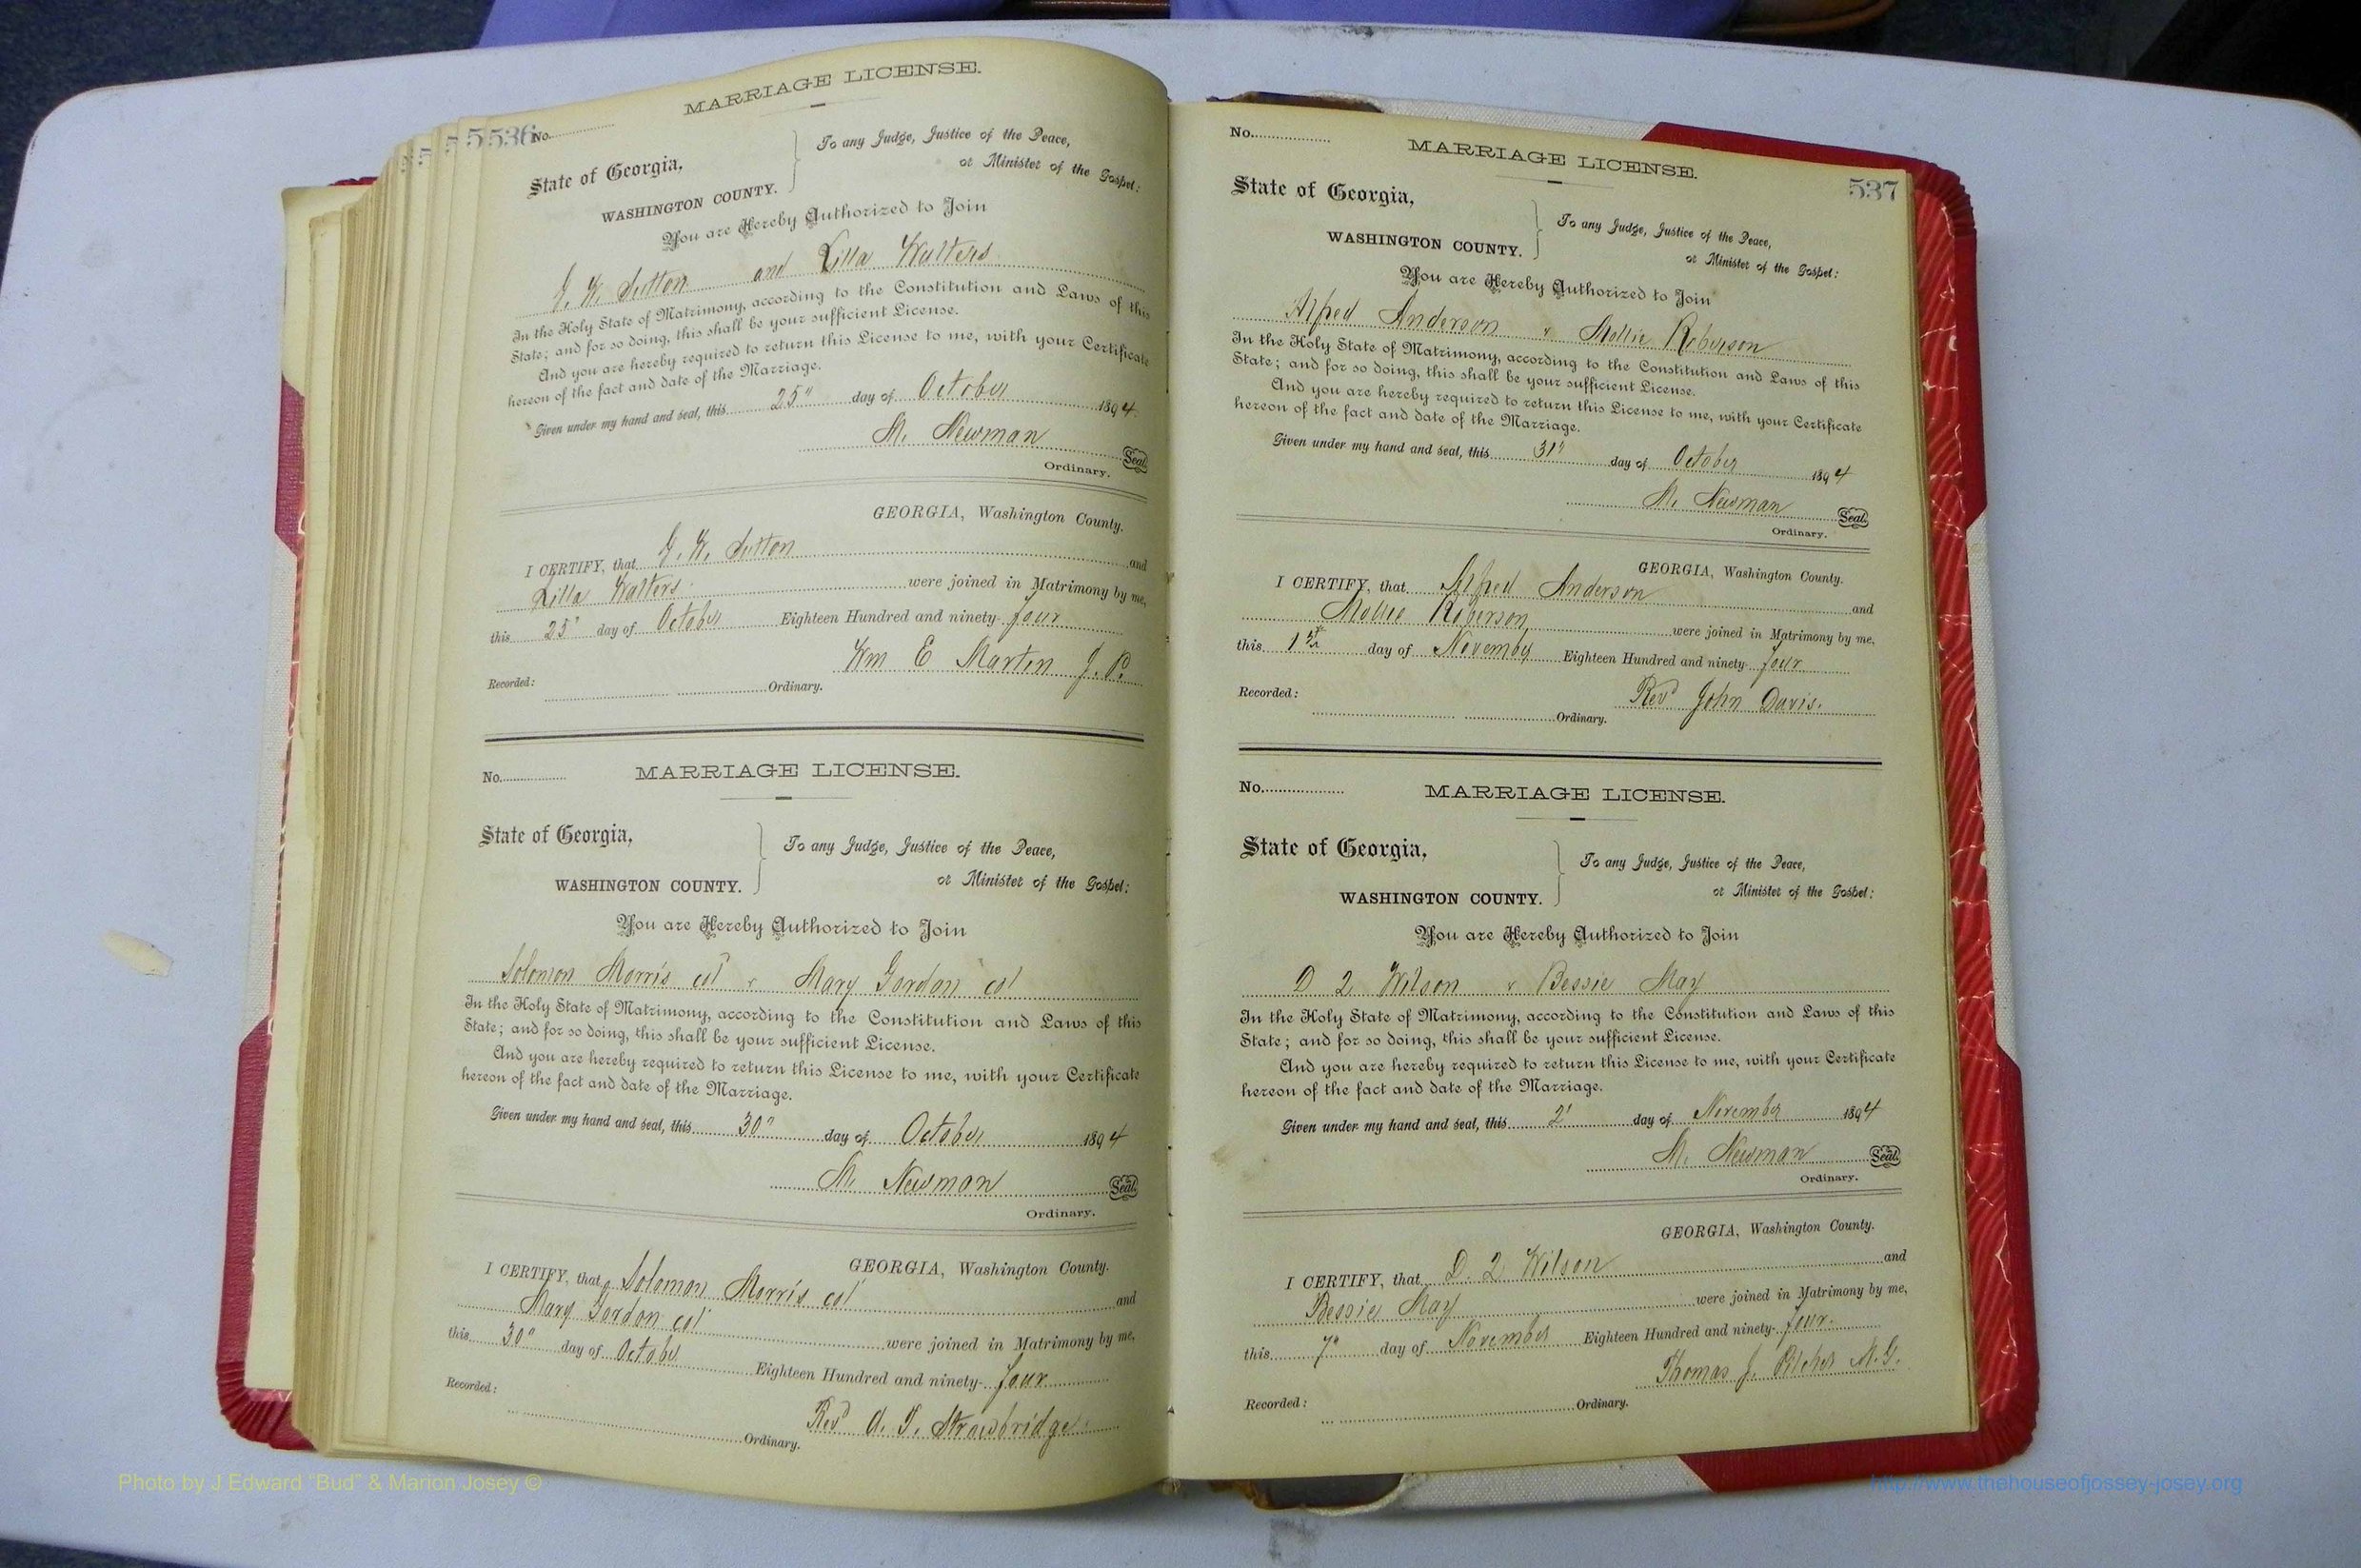 536
No.
MARRIAGE LICENSE.
State of Georgia,
WASHINGTON COUNTY.
To any Judge, Justice of the Peace,
or Minister of the Gospel:
You are Hereby Authorized to Join
G. W. Sutton and Lilla Walters
In the Holy State of Matrimony, according to the Constitution and Laws of this
State; and for so doing, this shall be your sufficient License.
And you are hereby required to return this License to me, with your Certificate
hereon of the fact and date of the Marriage.
Given under my hand and seal, this 25" day of October 1894
M. Newman Seal.
Ordinary.
GEORGIA, Washington County.
I CERTIFY, that G. W. Sutton and
Lilla Walters were joined in Matrimony by me,
this 25" day of October Eighteen Hundred and ninety-four
Wm E Martin J. P.
Recorded: Ordinary.
No.
MARRIAGE LICENSE.
State of Georgia,
WASHINGTON COUNTY.
To any Judge, Justice of the Peace,
or Minister of the Gospel:
You are Hereby Authorized to Join
Solomon Morris col & Mary Gordon col
In the Holy State of Matrimony, according to the Constitution and Laws of this
State; and for so doing, this shall be your sufficient License.
And you are hereby required to return this License to me, with your Certificate
hereon of the fact and date of the Marriage.
Given under my hand and seal, this 30" day of October 1894
M. Newman Seal.
Ordinary.
GEORGIA, Washington County.
I CERTIFY, that Solomon Morris col and
Mary Gordon col were joined in Matrimony by me,
this 30" day of October Eighteen Hundred and ninety-four
Revd A. T. Strowbridge
Recorded: Ordinary.
537
No.
MARRIAGE LICENSE.
State of Georgia,
WASHINGTON COUNTY.
To any Judge, Justice of the Peace,
or Minister of the Gospel:
You are Hereby Authorized to Join
Alfred Anderson & Mollie Roberson
In the Holy State of Matrimony, according to the Constitution and Laws of this
State; and for so doing, this shall be your sufficient License.
And you are hereby required to return this License to me, with your Certificate
hereon of the fact and date of the Marriage.
Given under my hand and seal, this 31" day of October 1894
M. Newman Seal.
Ordinary.
GEORGIA, Washington County.
I CERTIFY, that Alfred Anderson and
Mollie Roberson were joined in Matrimony by me,
this 1st day of November Eighteen Hundred and ninety-four
Revd John Davis.
Recorded: Ordinary.
No.
MARRIAGE LICENSE.
State of Georgia,
WASHINGTON COUNTY.
To any Judge, Justice of the Peace,
or Minister of the Gospel:
You are Hereby Authorized to Join
D Wilson & Bessie May
In the Holy State of Matrimony, according to the Constitution and Laws of this
State; and for so doing, this shall be your sufficient License.
And you are hereby required to return this License to me, with your Certificate
hereon of the fact and date of the Marriage.
Given under my hand and seal, this 2" day of November 1894
M. Newman Seal.
Ordinary.
GEORGIA, Washington County.
I CERTIFY, that D. Wilson and
Bessie May were joined in Matrimony by me,
this 7" day of November Eighteen Hundred and ninety-four.
Thomas J. Pilcher M.G.
Recorded: Ordinary.
Photo by J Edward "Bud" & Marion Josey ©
http://www.thehouseofjossey-josey.org